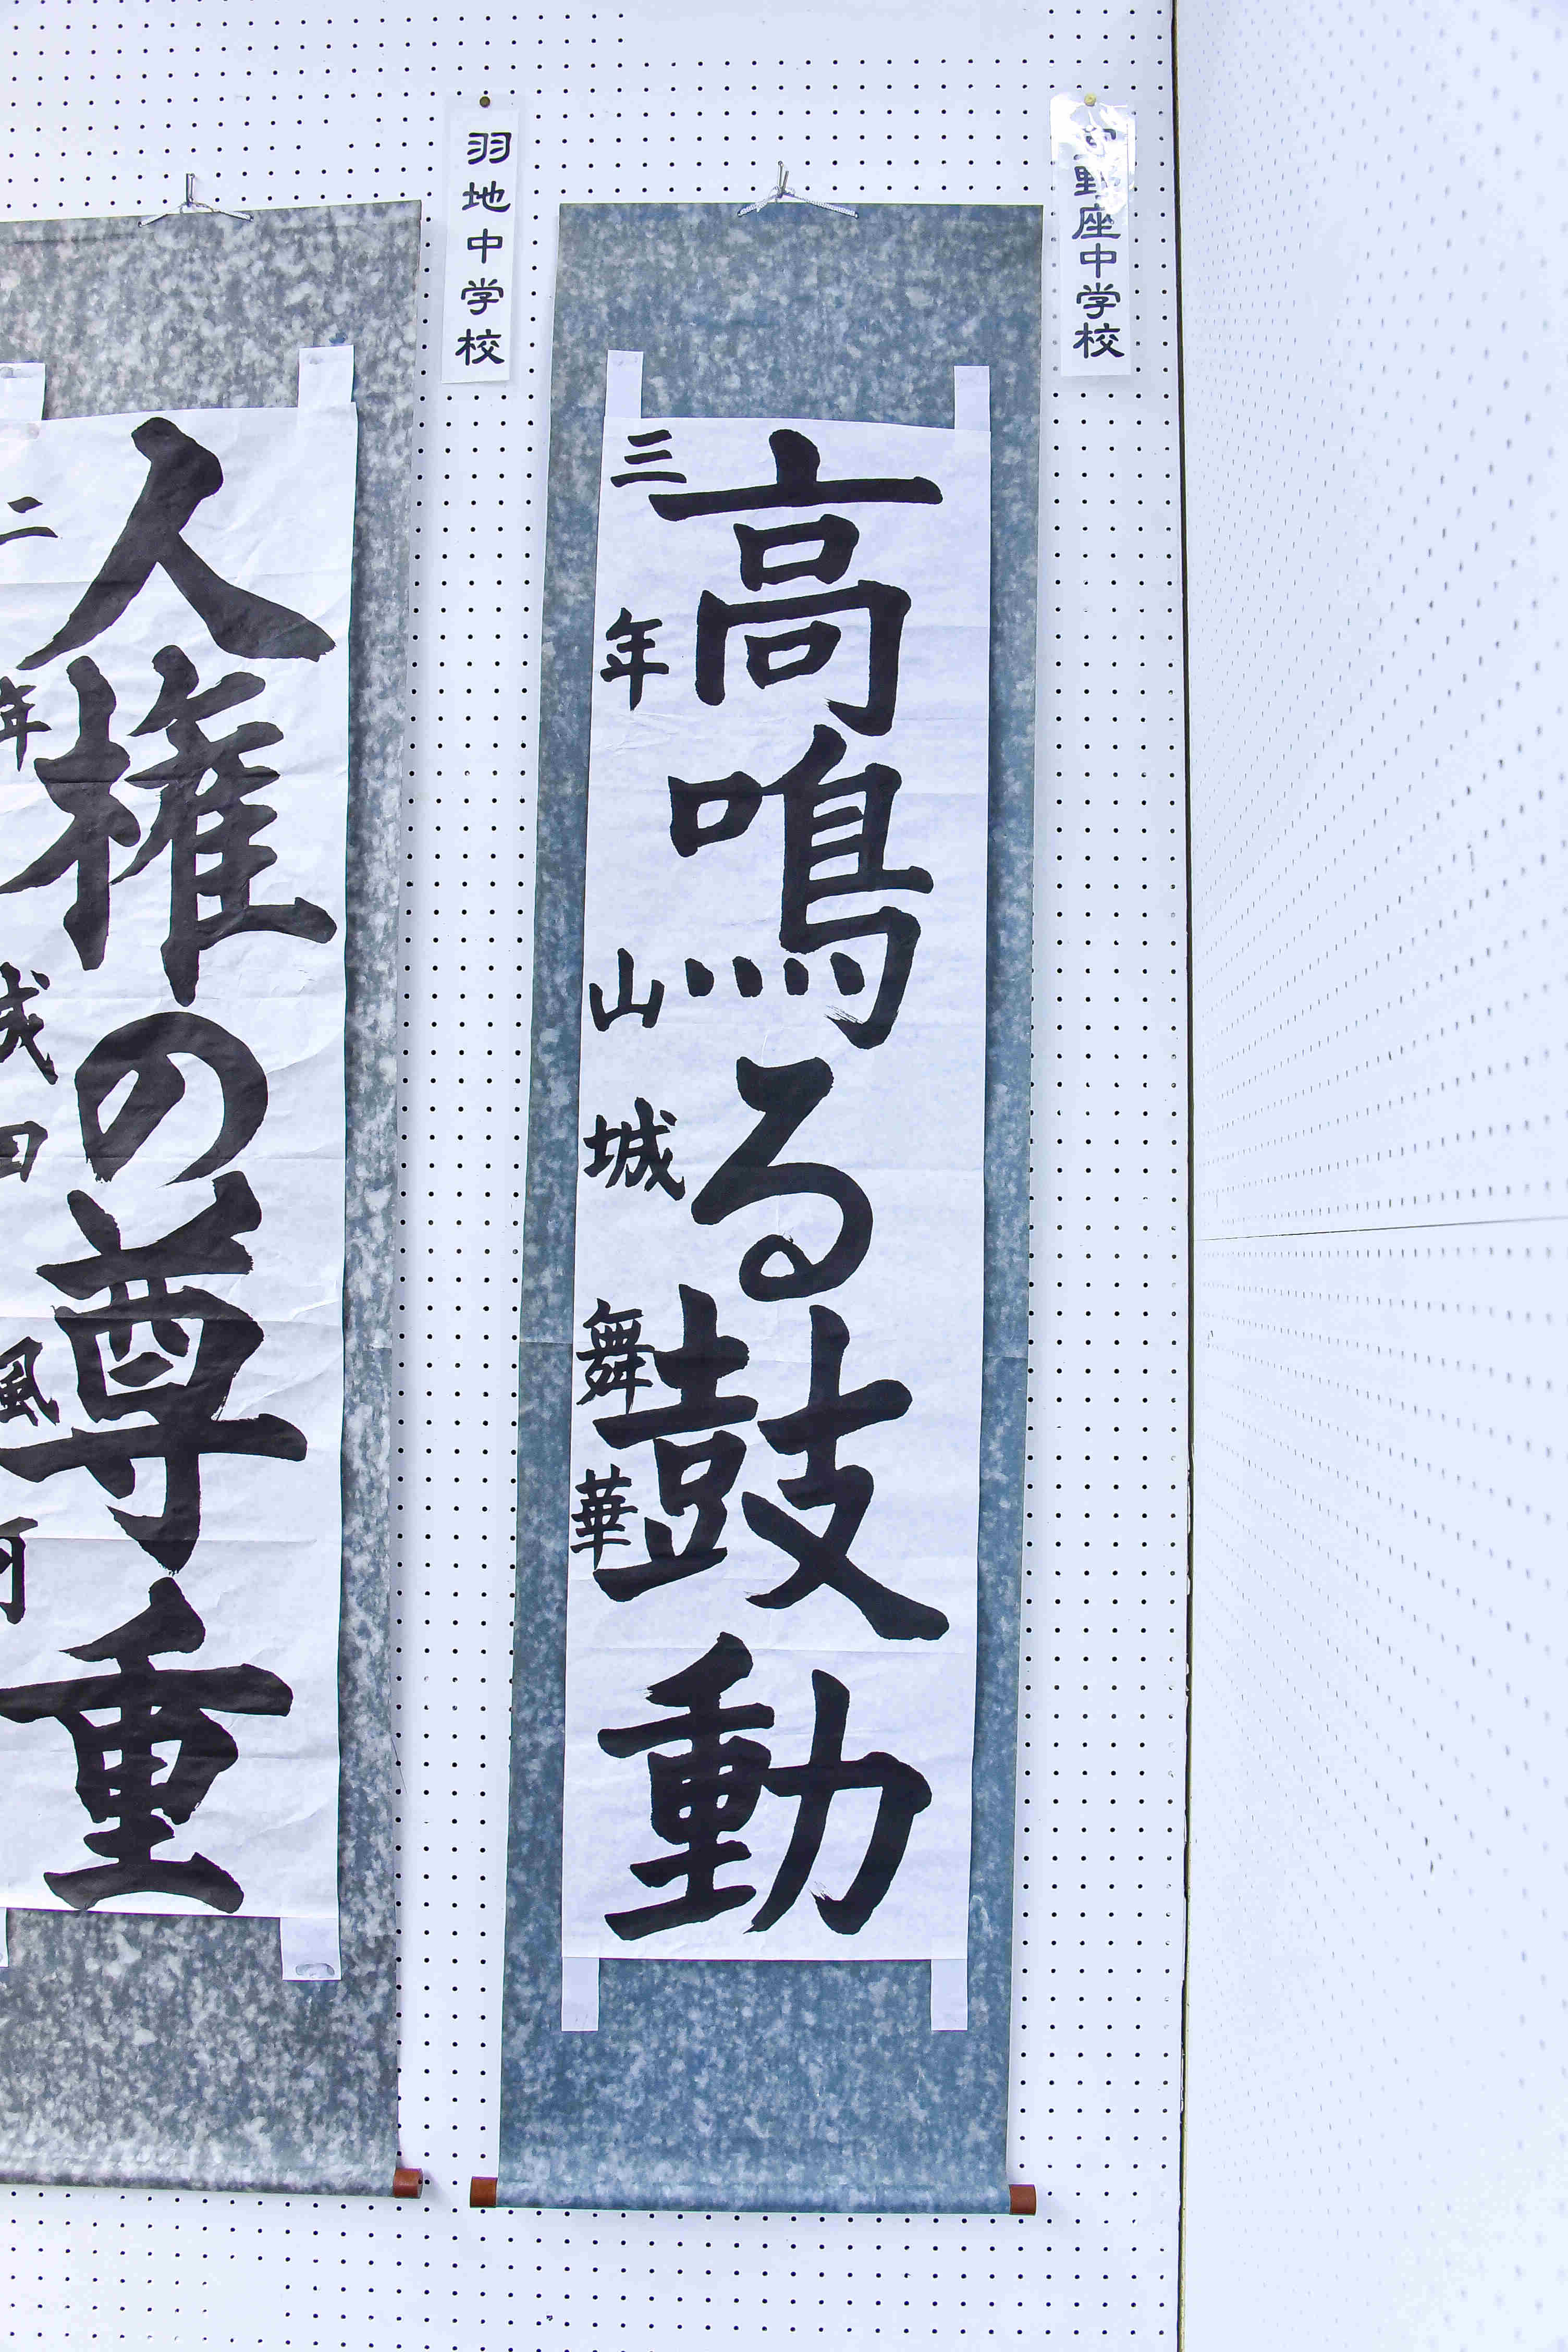 宜野座中学校
高鳴る鼓動
三年 山城 舞華
羽地中学校
人権の尊重
二年